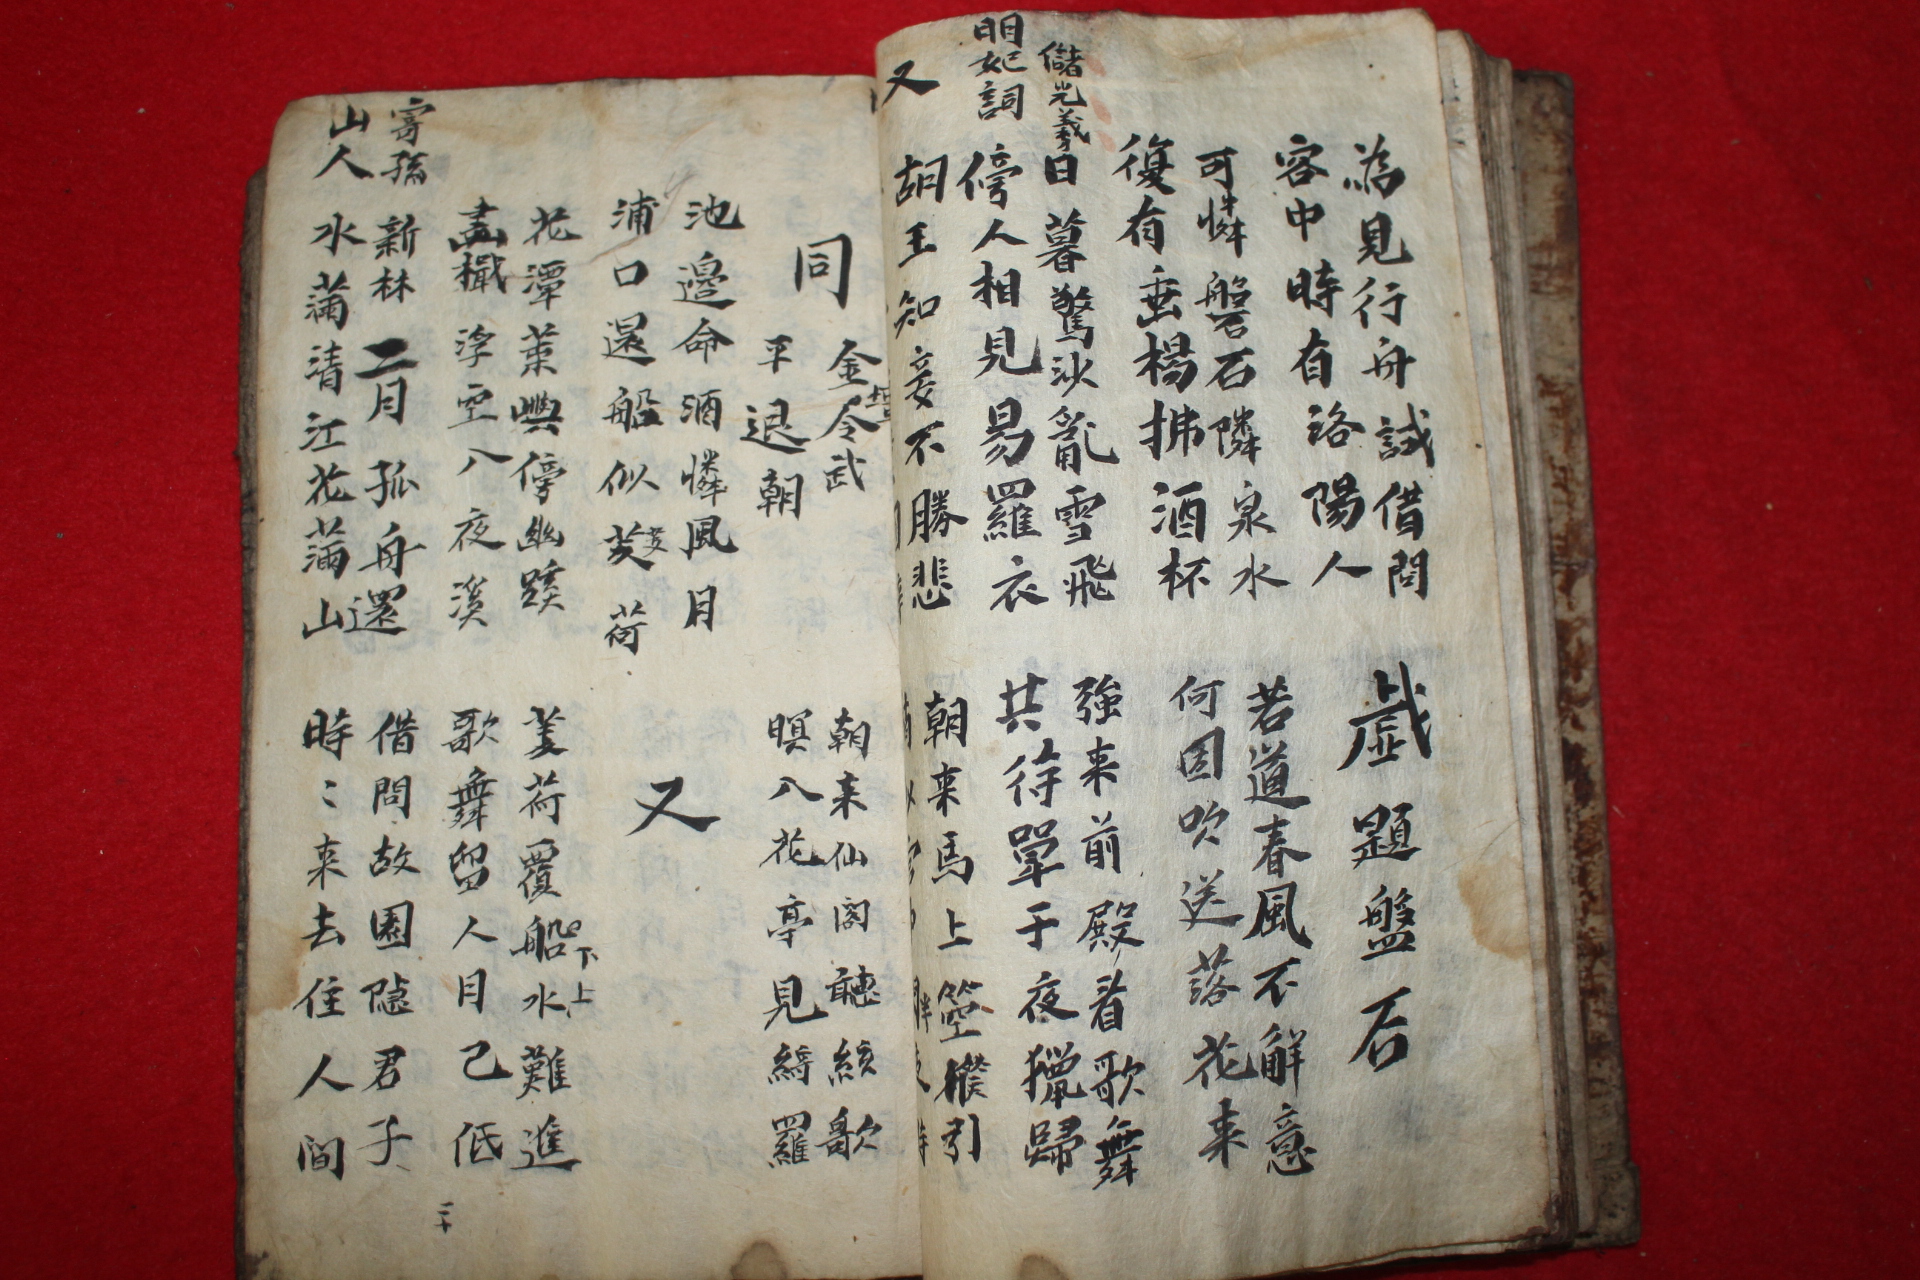 為見行舟試借問
容中時有洛陽人
戱題盤石
可憐磐石隣泉水
復有垂楊拂酒杯
若道春風不解意
何因吹送落花来
儲光羲
明妃詞
日暮驚沙亂雪飛
傍人相見易羅衣
強来前殿看歌舞
共待單于夜獵歸
又
胡王知妾不勝悲
朝来馬上箜篌引
同金壇令武
平退朝
朝来仙閣聴絃歌
暝入花亭見綺羅
池邊命酒憐風月
浦口還船似芰荷
又
花潭葉嶼傍幽蹊
畵檝浮空入夜溪
芰荷覆船水難進
下上
歌舞留人月已低
寄孫
山人
新林二月孤舟還
水滿清江花滿山
借問故園隠君子
時〻来去住人間